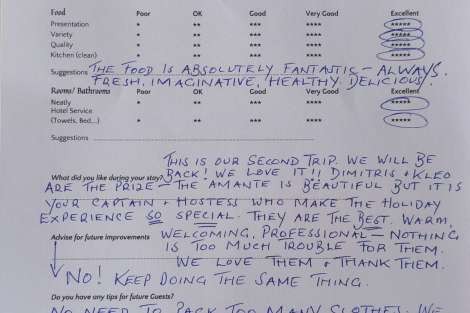 Food Poor OK Good Very Good Excellent
Presentation * ** *** **** *****
Variety * ** *** **** *****
Quality * ** *** **** *****
Kitchen (clean) * ** *** **** *****
Suggestions THE FOOD IS ABSOLUTELY FANTASTIC - ALWAYS.
FRESH, IMAGINATIVE, HEALTHY DELICIOUS!
Rooms/ Bathrooms Poor OK Good Very Good Excellent
Neatly * ** *** **** *****
Hotel Service
(Towels, Bed...) * ** *** **** *****
Suggestions
THIS IS OUR SECOND TRIP. WE WILL BE
What did you like during your stay? BACK! WE LOVE IT!! DIMITRIS + KLEO
ARE THE PRIZE - THE AMANTE IS BEAUTIFUL BUT IT IS
YOUR CAPTAIN + HOSTESS WHO MAKE THE HOLIDAY
EXPERIENCE SO SPECIAL. THEY ARE THE BEST. WARM,
Advise for future improvements WELCOMING, PROFESSIONAL - NOTHING
IS TOO MUCH TROUBLE FOR THEM.
WE LOVE THEM + THANK THEM.
NO! KEEP DOING THE SAME THING.
Do you have any tips for future Guests?
NO NEED TO PACK TOO MANY CLOTHES. WE